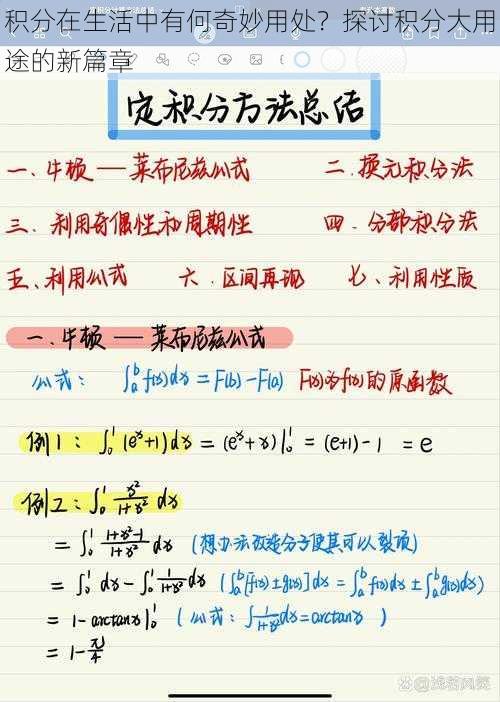 积分在生活中有何奇妙用处？探讨积分大用
途的新篇章
定积分方法总结
一、牛顿——莱布尼兹公式 二.换元积分法
三、利用奇偶性和周期性 四.分部积分法
五、利用公式 六.区间再现 七、利用性质
一.牛顿——莱布尼兹公式
公式：∫ₐᵇf(x)dx=F(b)-F(a) F(x)为f(x)的原函数
例1：∫₀¹(eˣ+1)dx=(eˣ+x)|₀¹=(e+1)-1=e
例2：∫₀¹ x²/(1+x²) dx
=∫₀¹ (1+x²-1)/(1+x²) dx (想办法改造分子使其可以裂项)
=∫₀¹dx-∫₀¹ 1/(1+x²) dx (∫ₐᵇ[f(x)±g(x)]dx=∫ₐᵇf(x)dx±∫ₐᵇg(x)dx)
=1-arctanx|₀¹ (公式：∫1/(1+x²)dx=arctanx)
=1-π/4